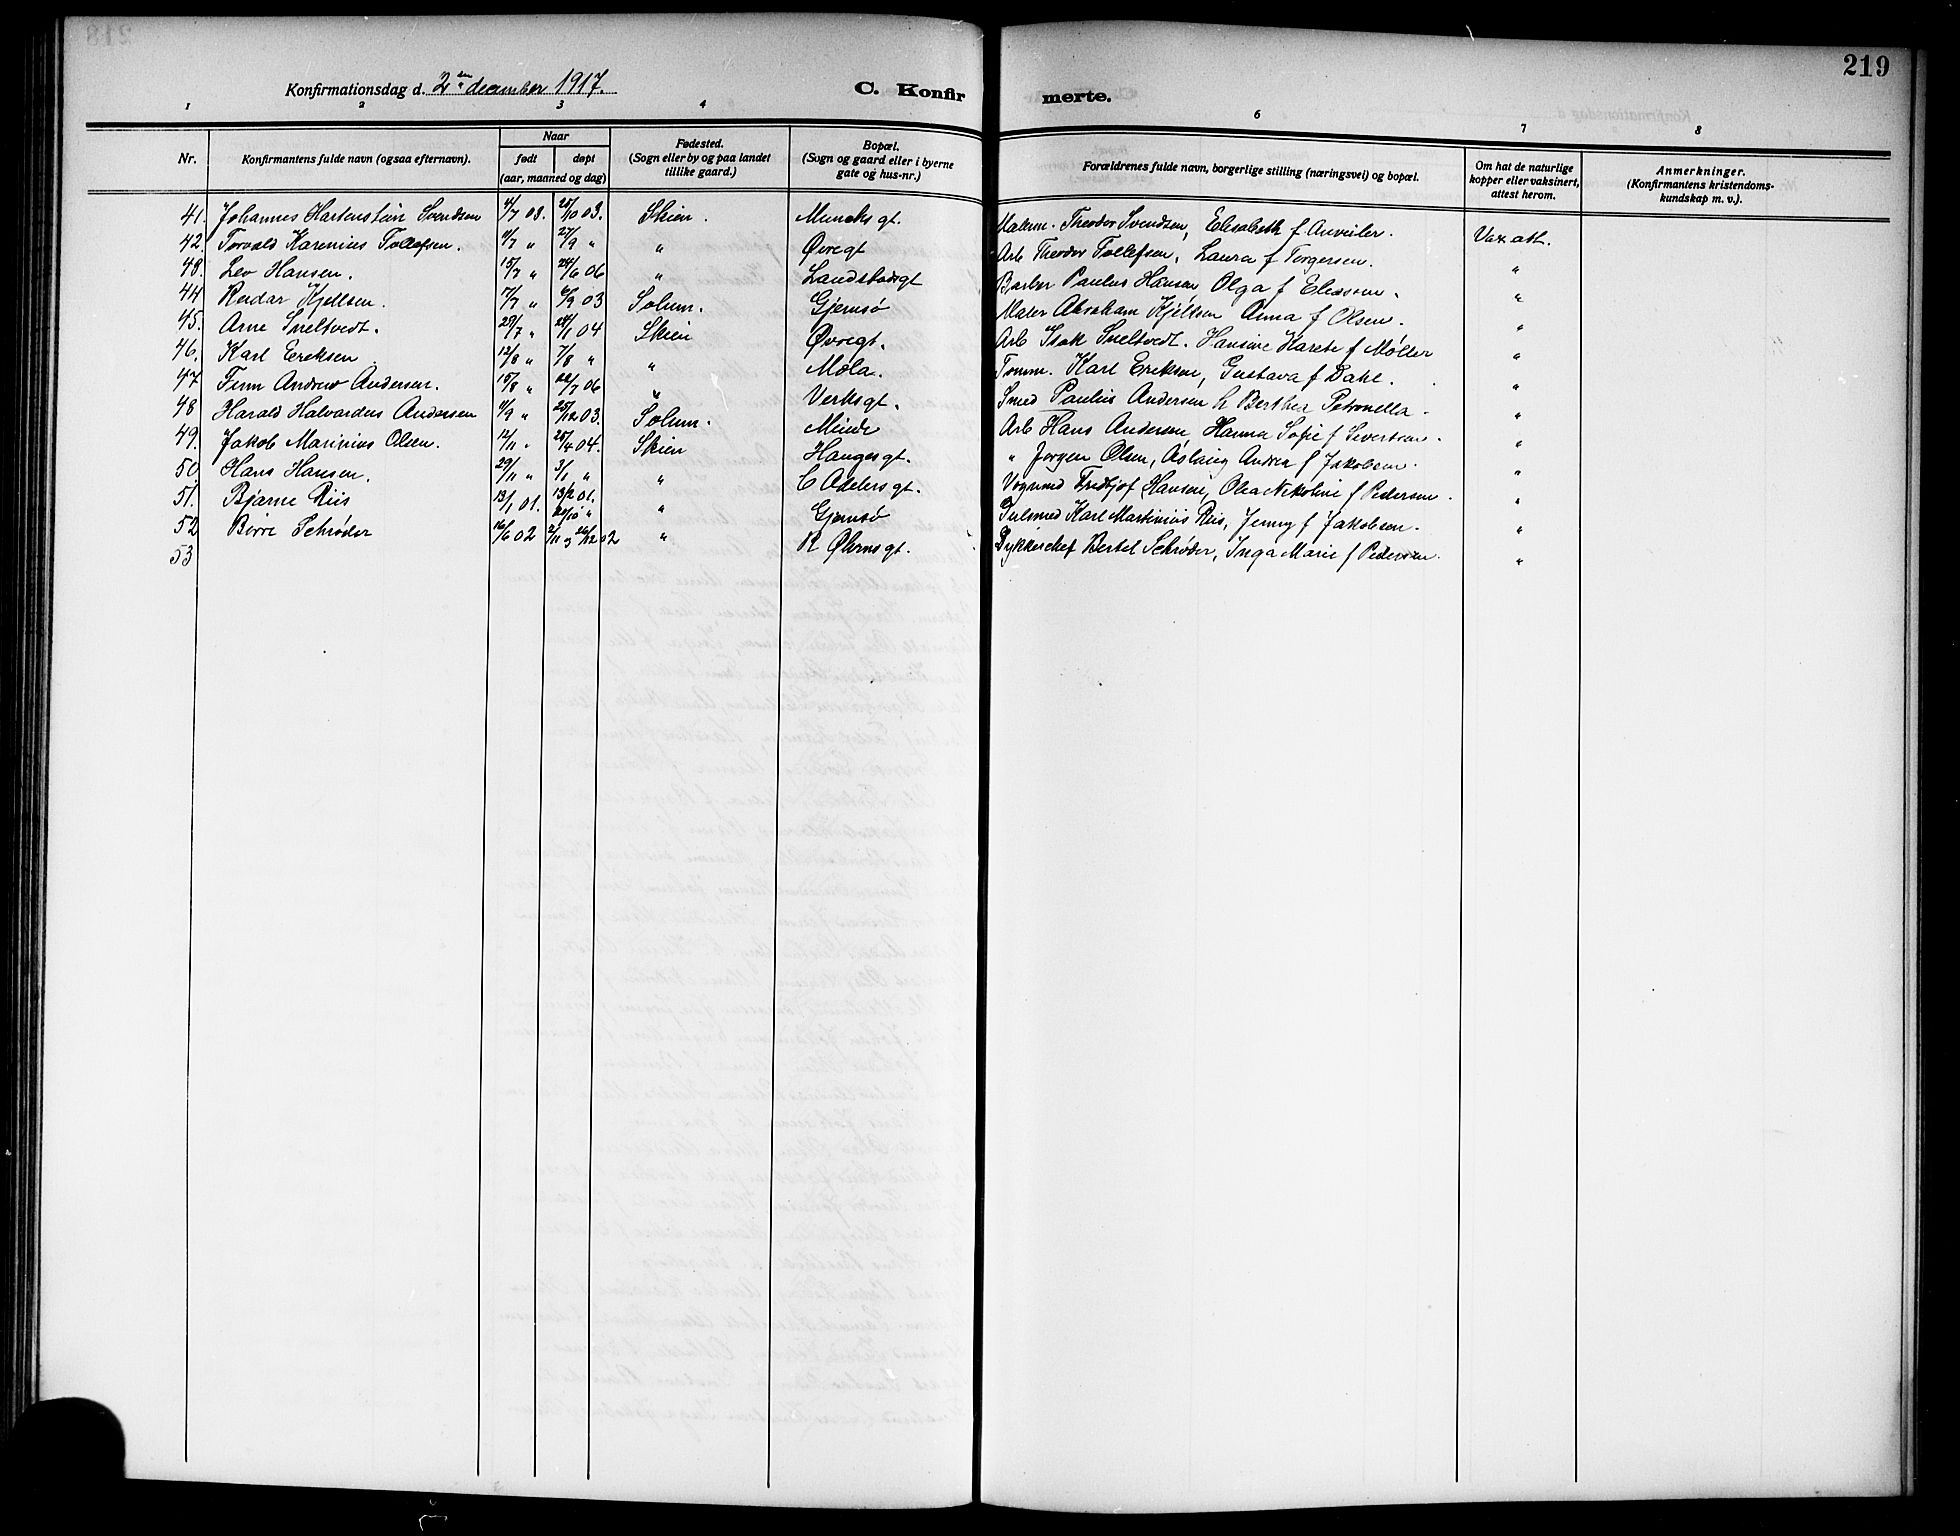 219
Konfirmationsdag d. 2den december 1917.
C. Konfirmerte.
1 2 3 4 6 7 8
Nr.
Konfirmantens fulde navn (ogsaa efternavn).
Naar
født døpt
(aar, maaned og dag)
Fødested.
(Sogn eller by og paa landet
tillike gaard.)
Bopæl.
(Sogn og gaard eller i byerne
gate og hus-nr.)
Forældrenes fulde navn, borgerlige stilling (næringsvei) og bopæl.
Om hat de naturlige
kopper eller vaksinert,
attest herom.
Anmerkninger.
(Konfirmantens kristendoms-
kundskap m. v.).
41. Johannes Hartenstein Svendsen 4/7 03. 25/10 03. Skien. Muncks gt. Malerm. Theodor Svendsen, Elisabeth f. Anveiler. Vax att.
42. Torvald Karenius Tollefsen. 11/7 " 27/9 " " Øvregt Arb Theodor Tollefsen, Laura f Torgersen. "
43. Leo Hansen. 15/7 " 24/6 06 " Landstadsgt Barber Paulus Hansen Olga f Eliassen. "
44 Reidar Kjellsen. 17/7 " 6/9 03 Solum. Gjemsø Maler Abraham Kjellsen Anna f Olsen. "
45. Arne Sneltvedt. 29/7 " 24/1 04 Skien Øvregt. Arb Isak Sneltvedt. Hansine Karete f Møller "
46. Karl Eriksen 12/8 " 7/8 " " Mæla. Tømm. Karl Eriksen, Gustava f Dahl. "
47 Finn Andrew Andersen. 15/8 " 22/7 06 " Verksgt. Smed Paulius Andersen h Berthea Petronella. "
48 Harald Halvardus Andersen 11/9 " 25/12 03. Solum. Minde Arb Hans Andersen, Hanna Sofie f Sivertsen. "
49. Jakob Marinius Olsen. 12/11 " 25/4 04. Skien Hauges gt. " Jørgen Olsen, Aslaug Andrea f Jakobsen. "
50. Hans Hansen. 29/11 " 3/1 " " C Adelers gt. Vognmd Fredtjof Hansen, Olea Nikoline f Pedersen. "
51. Bjarne Riis 13/1 01. 13/2 01. " Gjemsø Gulsmed Karl Martinius Riis, Jenny f Jakobsen. "
52 Børre Schrøder 16/6 02 26/12 02 " R Øhrnsgt. Dykkerchef Bertel Schrøder, Inga Marie f Pedersen. "
53